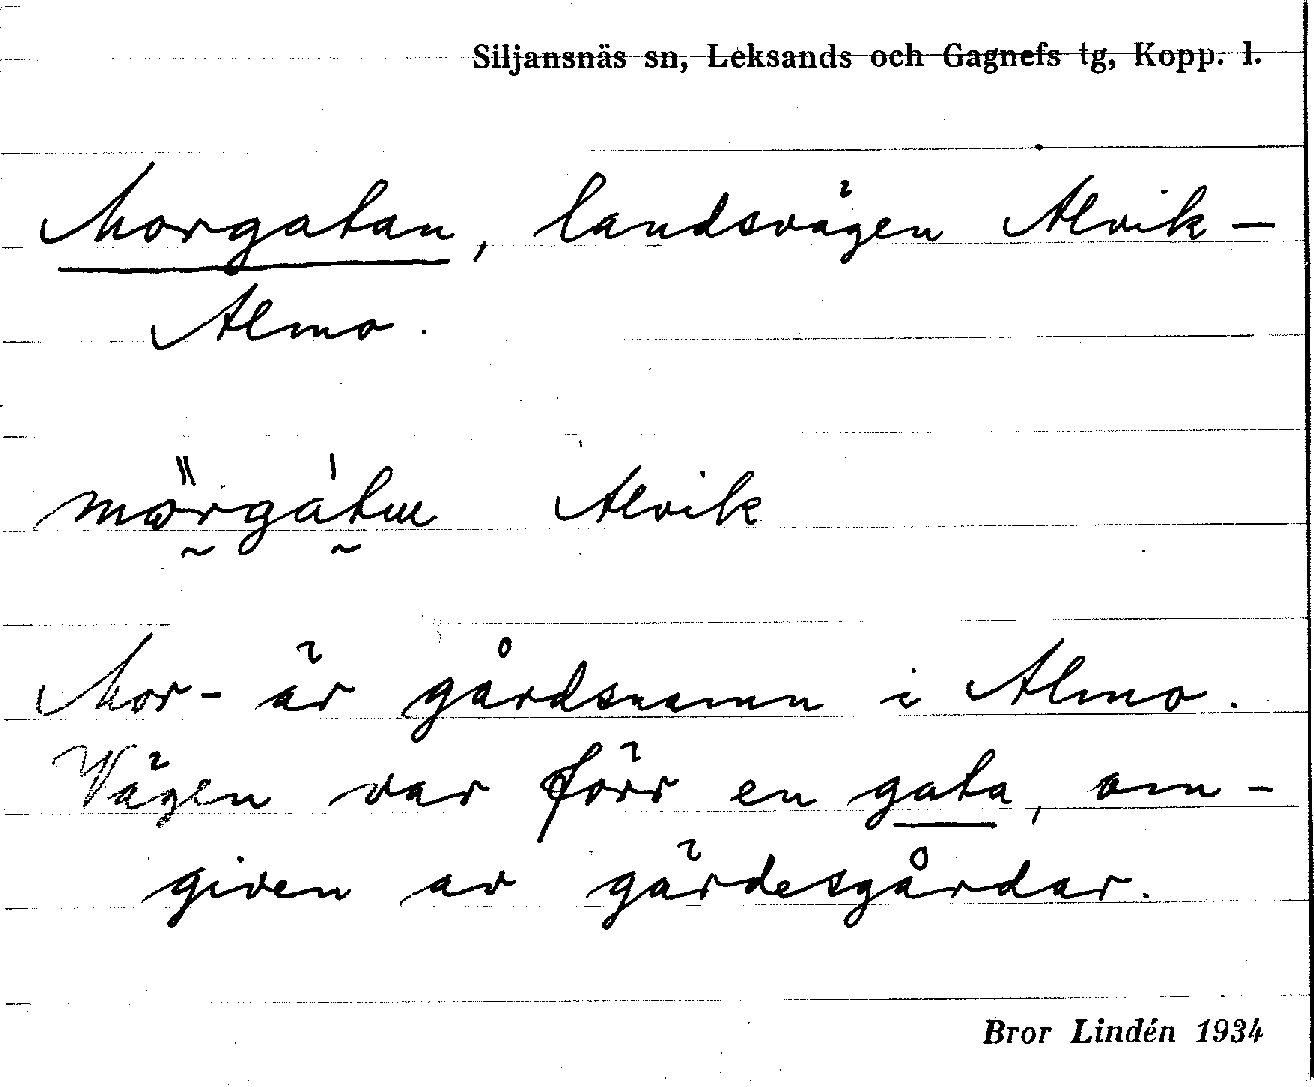 Siljansnäs sn, Leksands och Gagnefs tg, Kopp. l.
Morgatan, landsvägen Alvik –
Almo.
Alvik
Mor- är gårdsnamn i Almo.
Vägen var förr en gata, om-
given av gärdesgårdar.
Bror Lindén 1934